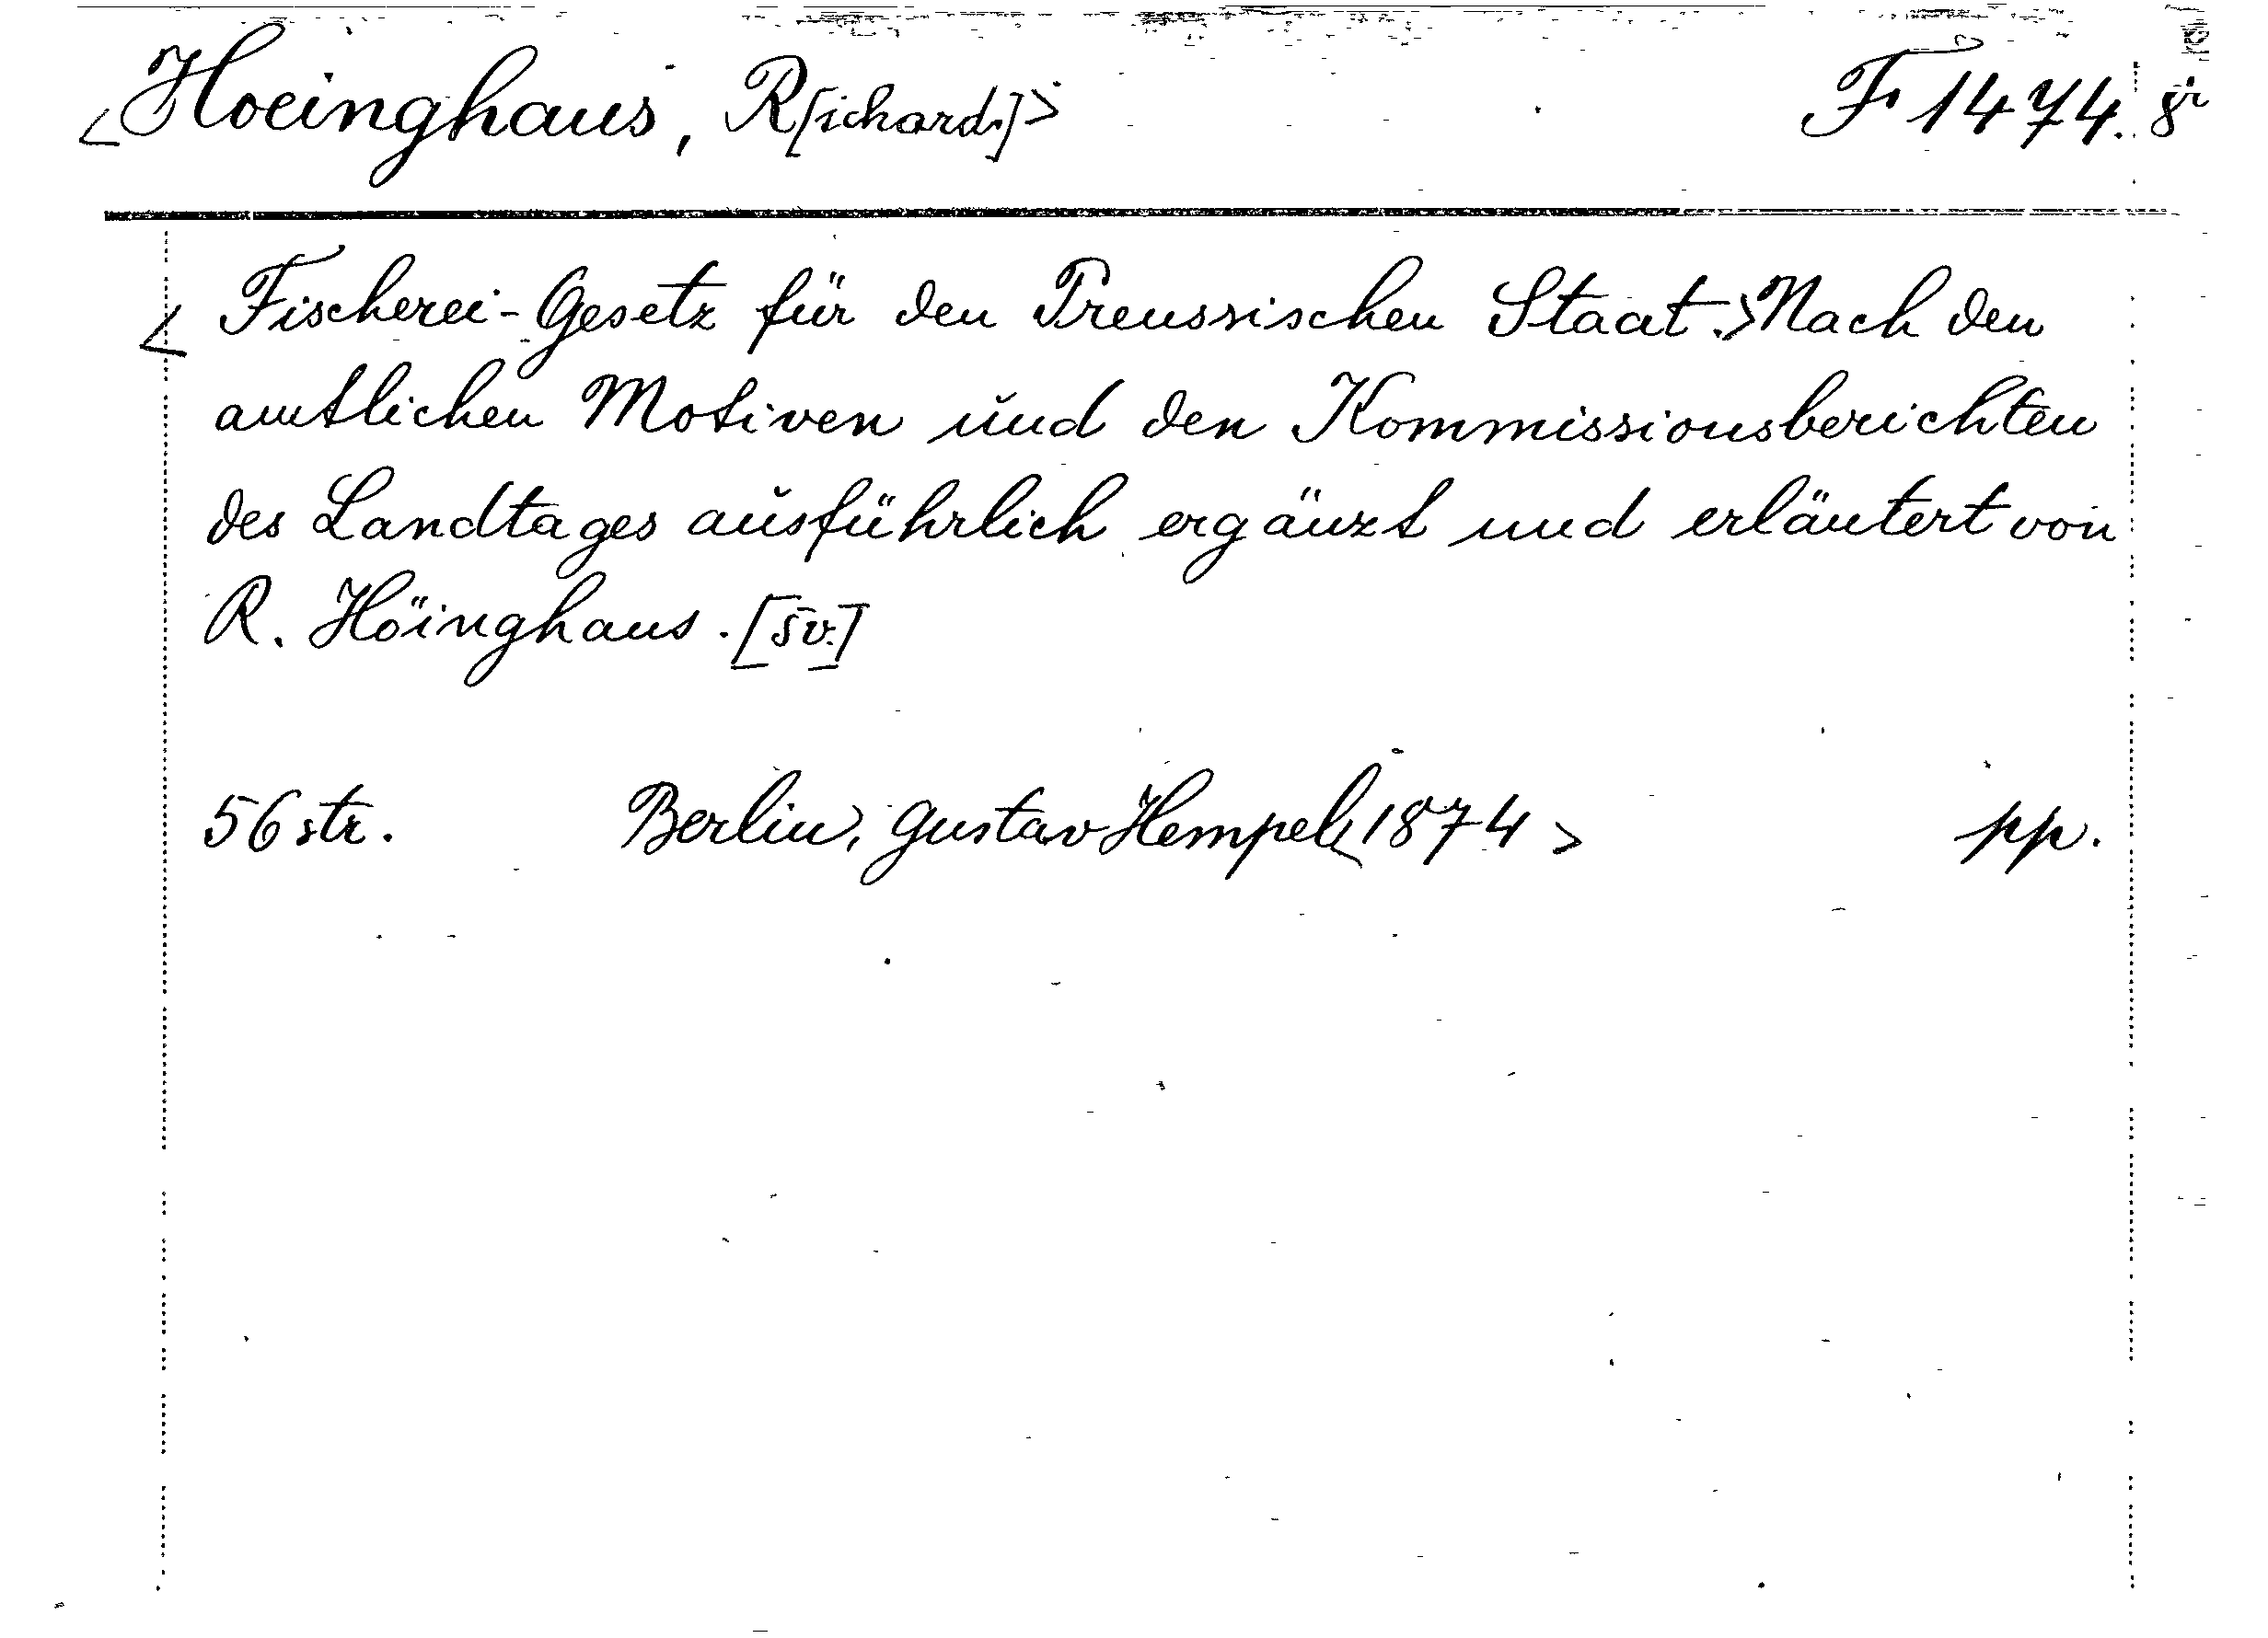 <Hoeinghaus, R[ichard.]> F 1474. 8r
<Fischerei-Gesetz für den Preussischen Staat.> Nach den
amtlichen Motiven und den Kommissionsberichten
des Landtages ausführlich ergänzt und erläutert von
R. Höinghaus. [sv.]
56 str. Berlin, Gustav Hempel, <1874> pp.